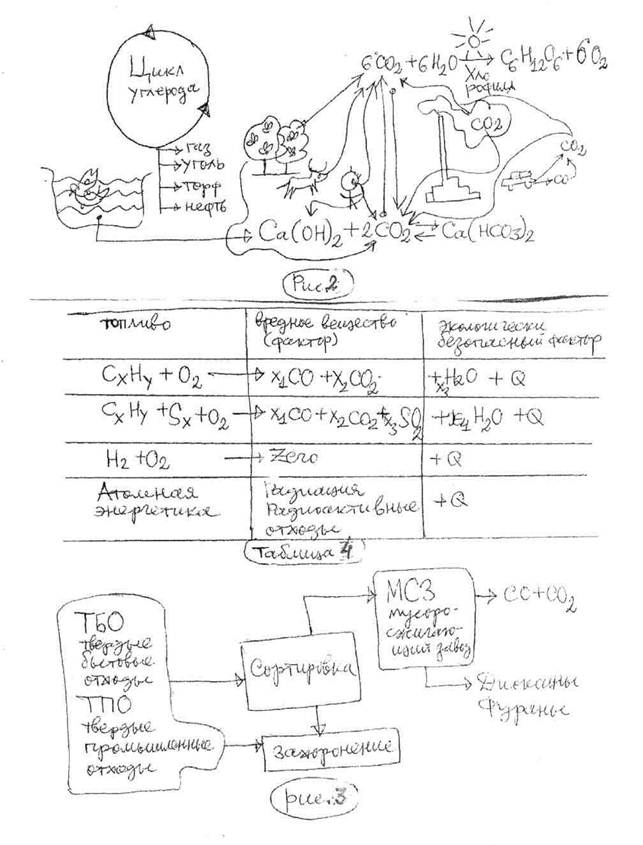 Цикл
углерода
газ
уголь
торф
нефть
6CO2 + 6H2O → C6H12O6 + 6O2
Хло
рофилл
CO2
CO2
CO
Ca(OH)2 + 2CO2 ⇄ Ca(HCO3)2
Рис. 2
топливо
вредное вещество
(фактор)
экологически
безопасный фактор
CxHy + O2 → x1CO + x2CO2
+x3H2O + Q
CxHy + Sx + O2 → x1CO + x2CO2 + x3SO2
+x4H2O + Q
H2 + O2 → Zero
+ Q
Атомная
энергетика
Радиация
Радиоактивные
отходы
+ Q
Таблица 4
ТБО
твердые
бытовые
отходы
ТПО
твердые
промышленные
отходы
Сортировка
захоронение
МСЗ
мусоро-
сжигаю-
щий завод
CO + CO2
Диоксины
Фураны
рис. 3